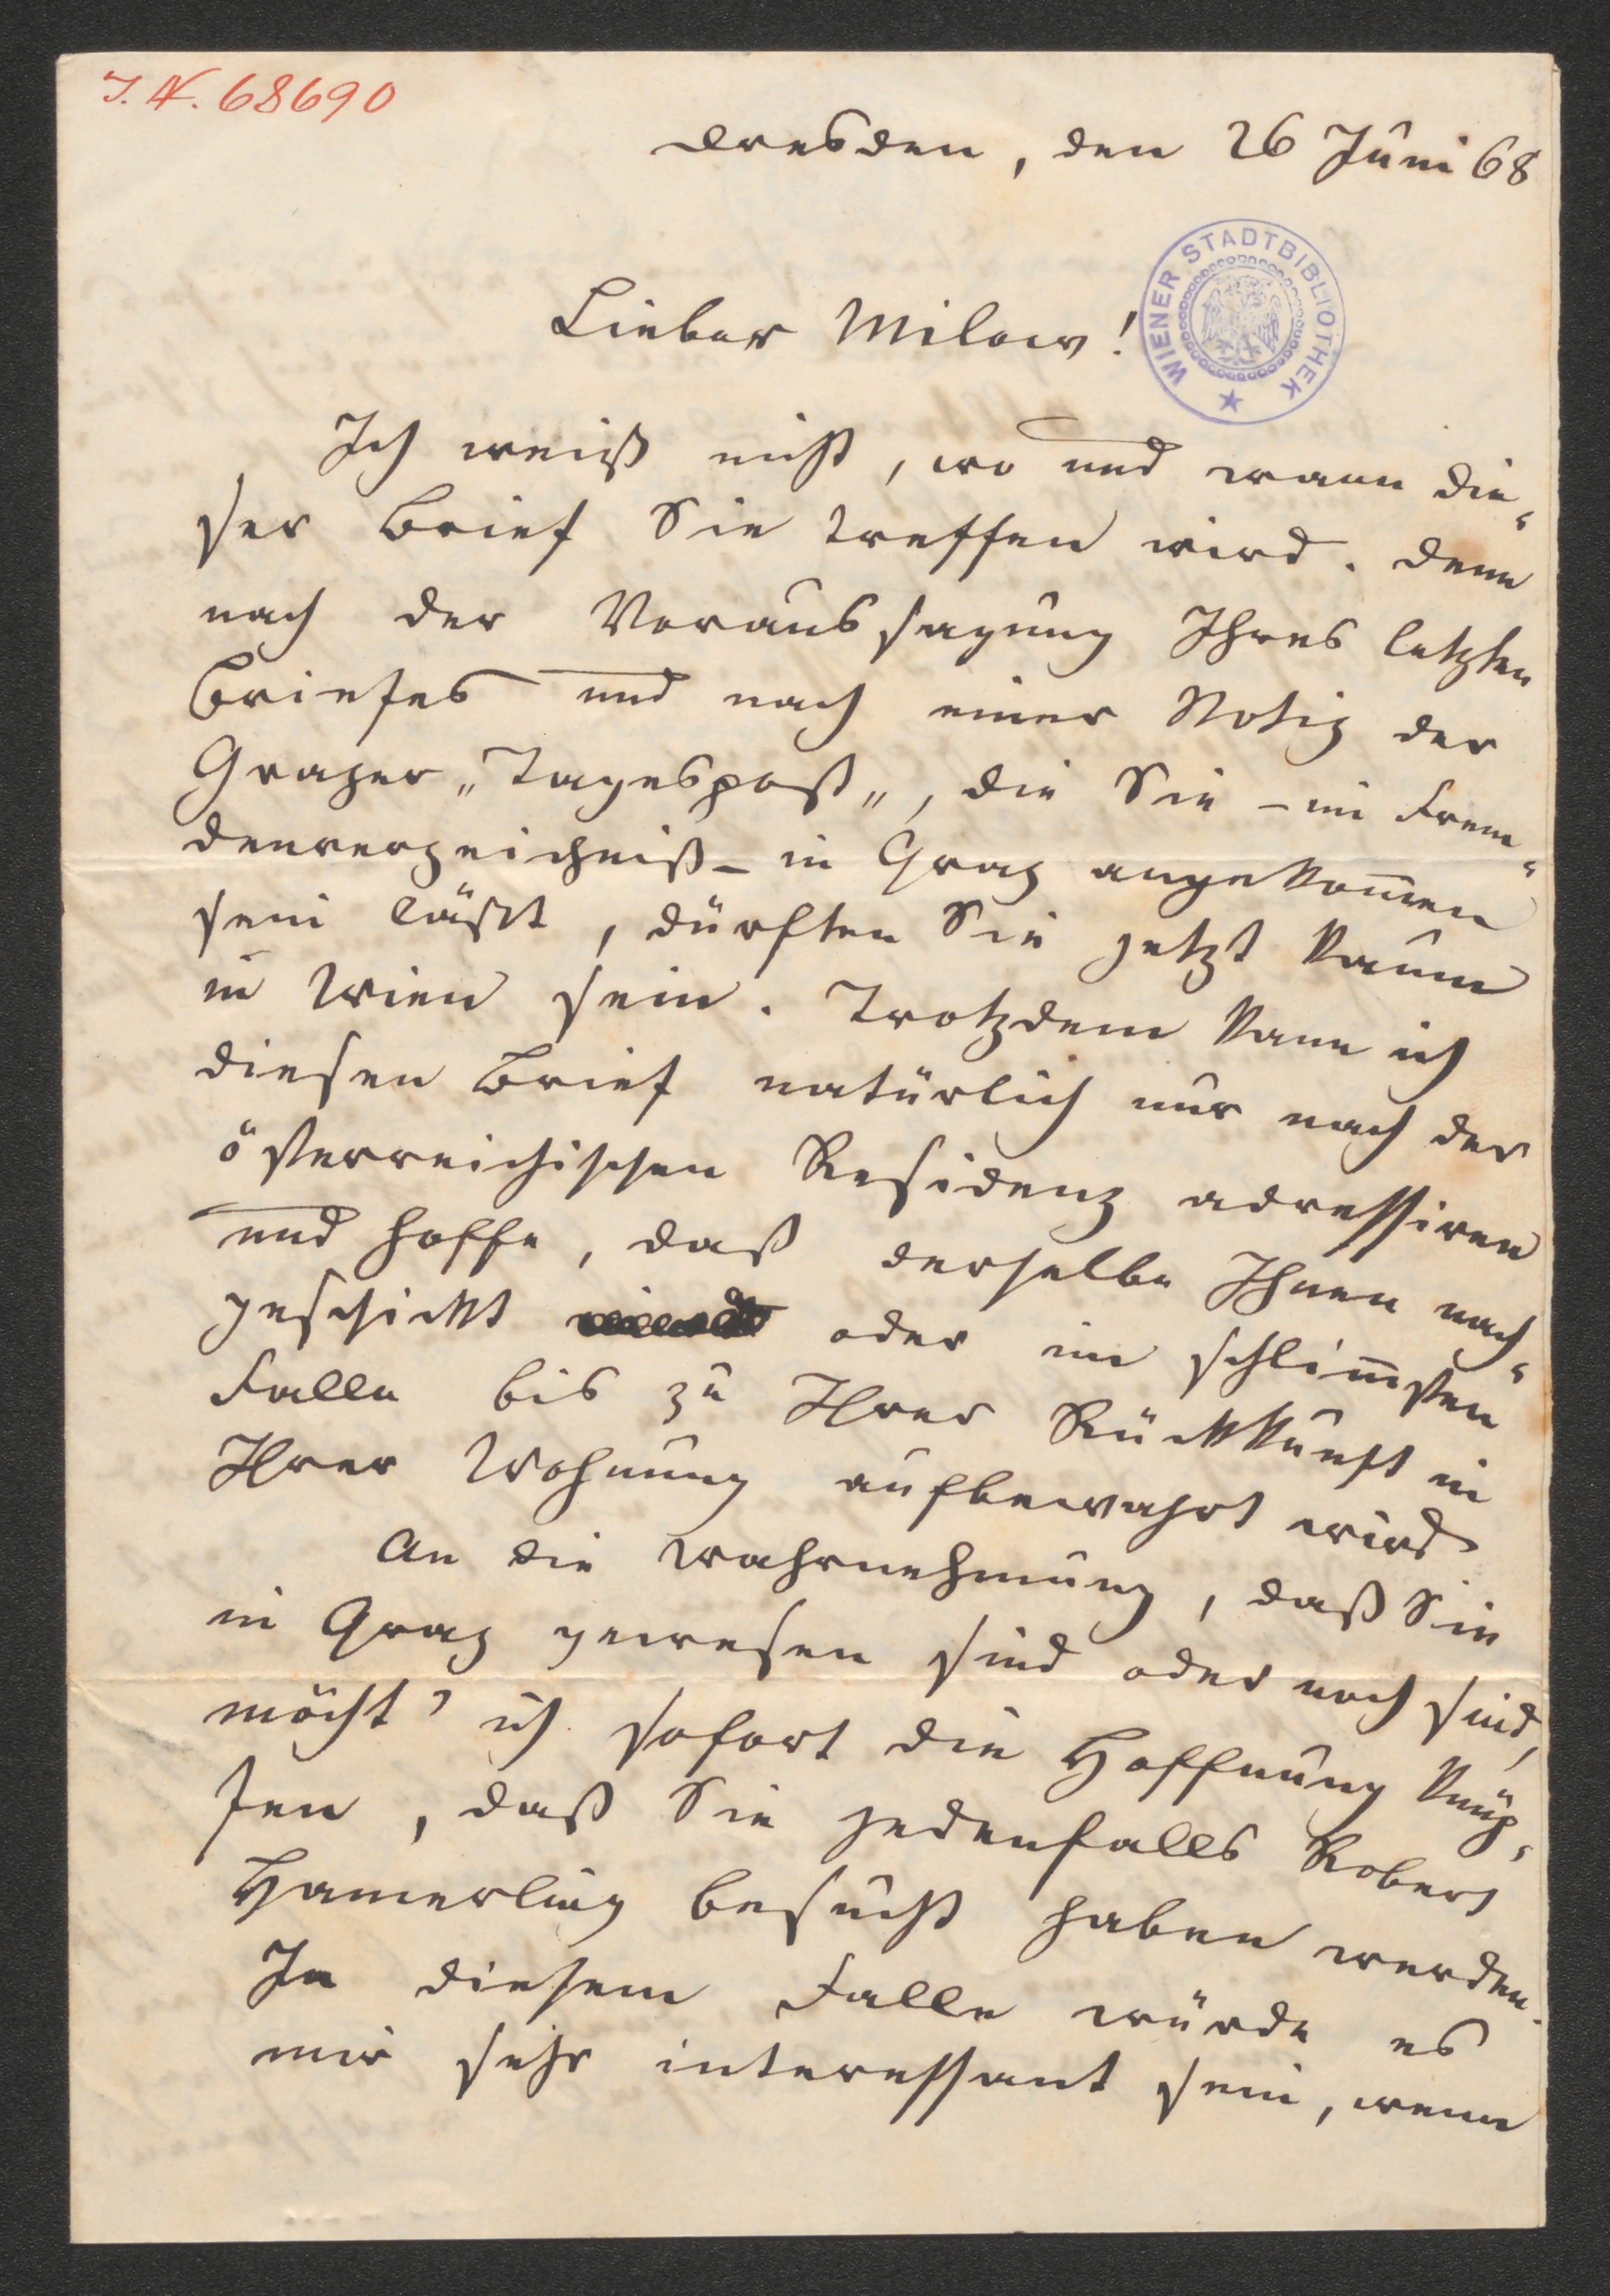 I. N. 68690
Dresden, den 26 Juni 68
WIENER STADTBIBLIOTHEK
Lieber Milow!
Ich weiß nicht, wo und wann die-
ser Brief Sie treffen wird. Denn
nach der Voraussagung Ihres letzten
Briefes und nach einer Notiz der
Grazer „Tagespost„, die Sie – im Frem-
denverzeichniß – in Graz angekom̅en
sein läßt, dürften Sie jetzt kaum
in Wien sein. Trotzdem kann ich
diesen Brief natürlich nur nach der
österreichischen Residenz adressiren
und hoffe, daß derselbe Ihnen nach-
geschickt oder im schlim̅sten
Falle bis zu Ihrer Rückkunft in
Ihrer Wohnung aufbewahrt wird
An die Wahrnehmung, daß Sie
in Graz gewesen sind oder noch sind,
möcht' ich sofort die Hoffnung knüp-
fen, daß Sie jedenfalls Robert
Hamerling besucht haben werden.
In diesem Falle würde es
mir sehr interessant sein, wenn